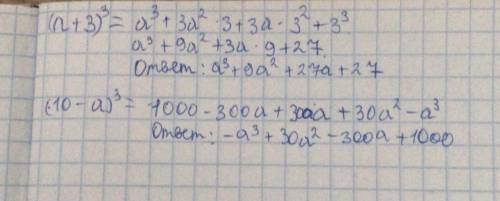 (n+3)³ = a³ + 3a² · 3 + 3a · 3² + 3³
a³ + 9a² + 3a · 9 + 27.
Ответ: a³ + 9a² + 27a + 27
(10 - a)³ = 1000 - 300a + 300a + 30a² - a³
Ответ: -a³ + 30a² - 300a + 1000